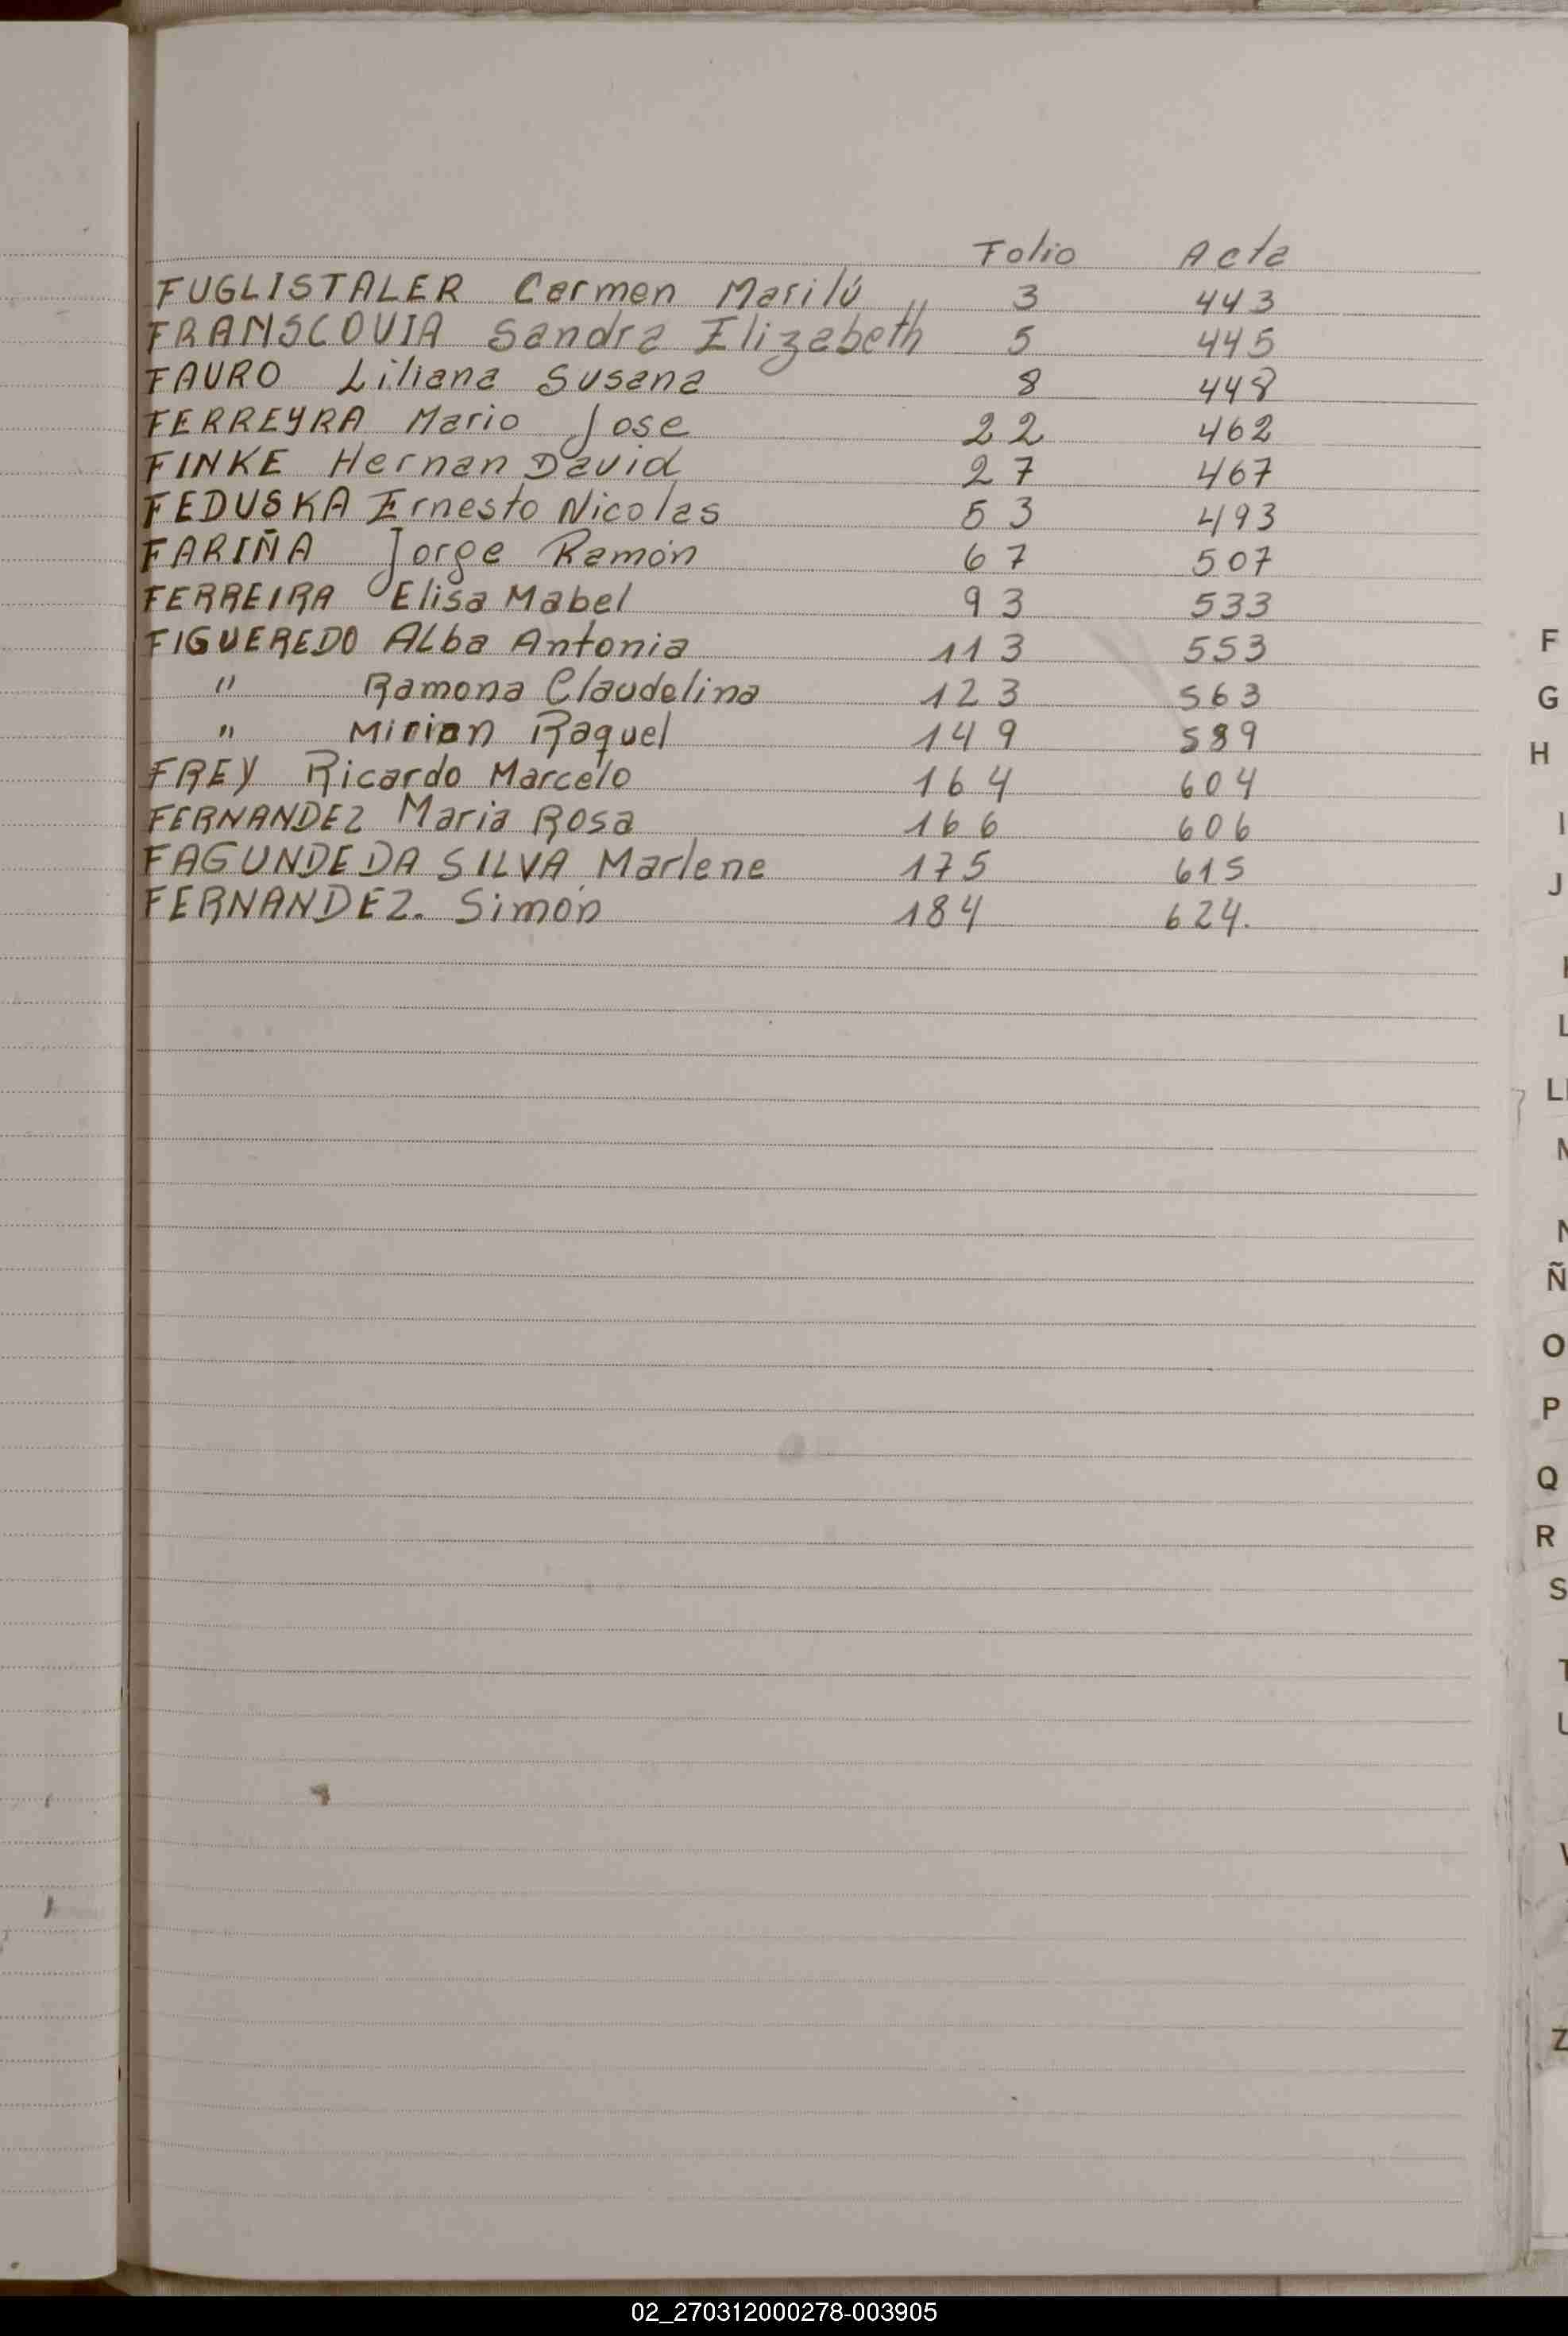 Folio Acta
FUGLISTALER Carmen Marilú " 3 443
FRANSCOVIA Sandra Elizabeth 5 445
FAURO Liliana Susana 8 448
FERREYRA Mario Jose 22 462
FINKE Hernan David 27 467
FEDUSKA Ernesto Nicolas 53 493
FARIÑA Jorge Ramón 67 507
FERREIRA Elisa Mabel 93 533
FIGUEREDO ALba Antonia 113 553
" Ramona Claudelina 123 563
" Mirian Raquel 149 589
FREY Ricardo Marcelo 164 604
FERNANDEZ Maria Rosa 166 606
FAGUNDE DA SILVA Marlene 175 615
FERNANDEZ. Simón 184 624.
F
G
H
I
J
L
Ñ
O
P
Q
R
S
Z
02_270312000278-003905